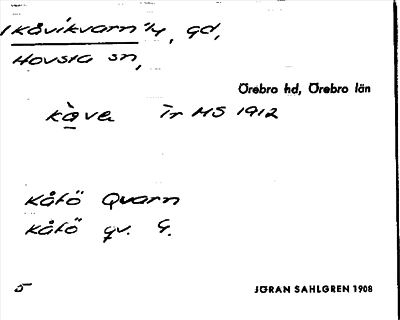 Kåvikvarn 1/4, gd,
Hovsta sn,
Örebro hd, Örebro län
kàva Ir MS 1912
Kåfö Qvarn
Kåfö qv. G.
5 JÖRAN SAHLGREN 1908